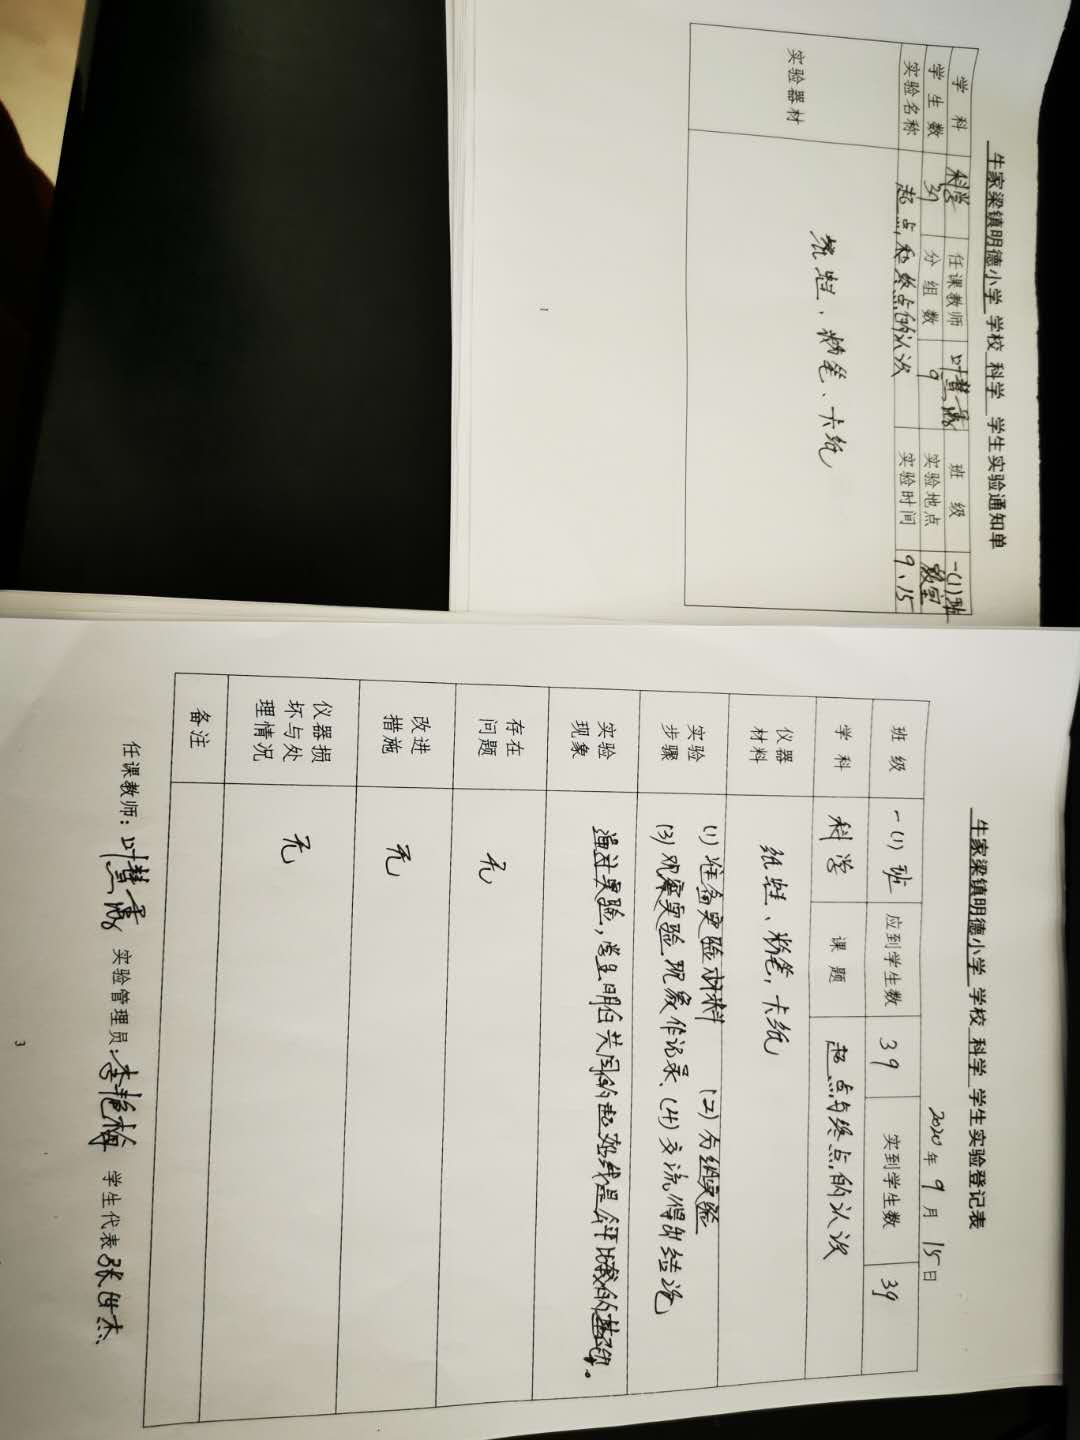 牛家梁镇明德小学 学校 科学 学生实验通知单
学 科 科学 任课教师 叶慧霞 班 级 一(1)班
学 生 数 39 分 组 数 9 实验地点 教室
实验名称 起点和终点的认识 实验时间 9、15
实验器材 纸蛙、粉笔、卡纸
1
牛家梁镇明德小学 学校 科学 学生实验登记表
2020年 9 月 15日
班 级 一(1)班 应到学生数 39 实到学生数 39
学 科 科学 课 题 起点与终点的认识
仪器材料 纸蛙、粉笔,卡纸
实验步骤 (1)准备实验材料 (2)分组实验
(3)观察实验现象作记录、(4)交流得出结论
实验现象 通过实验,学生明白共同的起跑线是公平比赛的基础。
存在问题 无
改进措施 无
仪器损坏与处理情况 无
备注
任课教师:叶慧霞 实验管理员:李艳梅 学生代表 张世杰
3